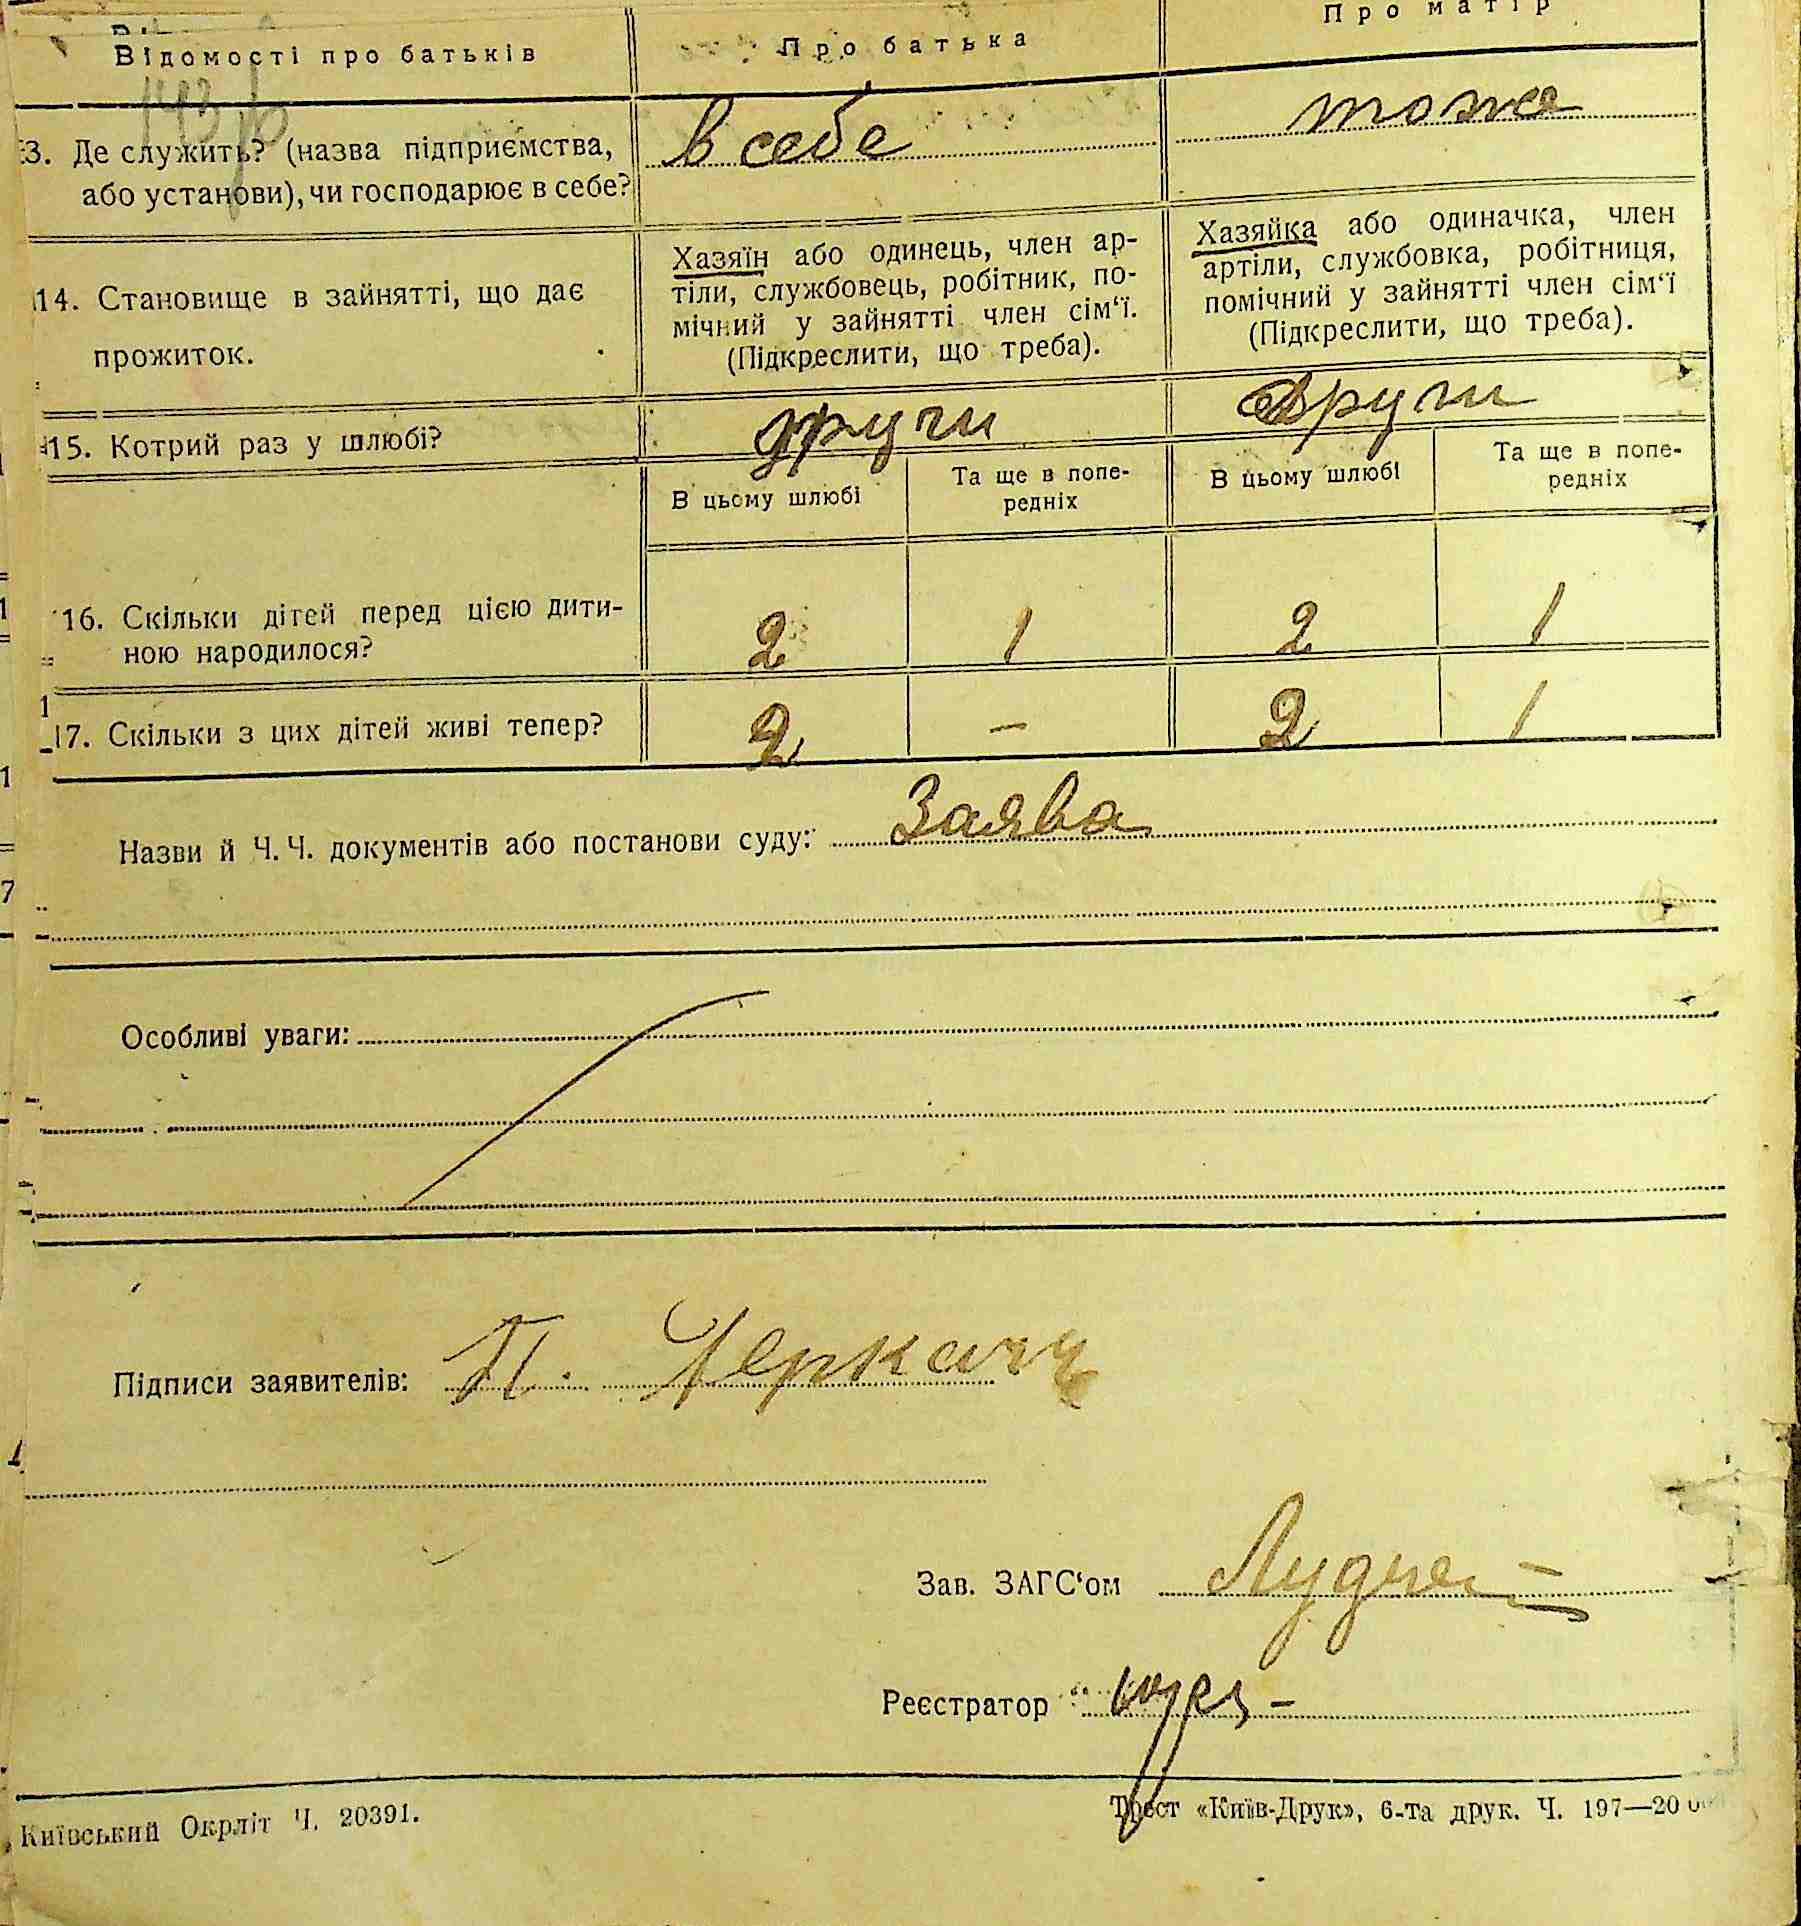 Відомості про батьків
Про батька
Про матір
143
3. Де служить? (назва підприємства,
або установи), чи господарює в себе?
в себе
тоже
14. Становище в зайнятті, що дає
прожиток.
Хазяїн або одинець, член ар-
тіли, службовець, робітник, по-
мічний у зайнятті член сім‘ї.
(Підкреслити, що треба).
Хазяйка або одиначка, член
артіли, службовка, робітниця,
помічний у зайнятті член сім‘ї
(Підкреслити, що треба).
15. Котрий раз у шлюбі?
други
други
В цьому шлюбі
Та ще в попе-
редніх
В цьому шлюбі
Та ще в попе-
редніх
16. Скільки дітей перед цією дити-
ною народилося?
2 1 2 1
17. Скільки з цих дітей живі тепер?
2 – 2 1
Назви й Ч. Ч. документів або постанови суду: Заява
Особливі уваги:
Підписи заявителів: П.
Зав. ЗАГС‘ом
Реєстратор
Київський Окрліт Ч. 20391.
Трест «Київ-Друк», 6-та друк. Ч. 197—20